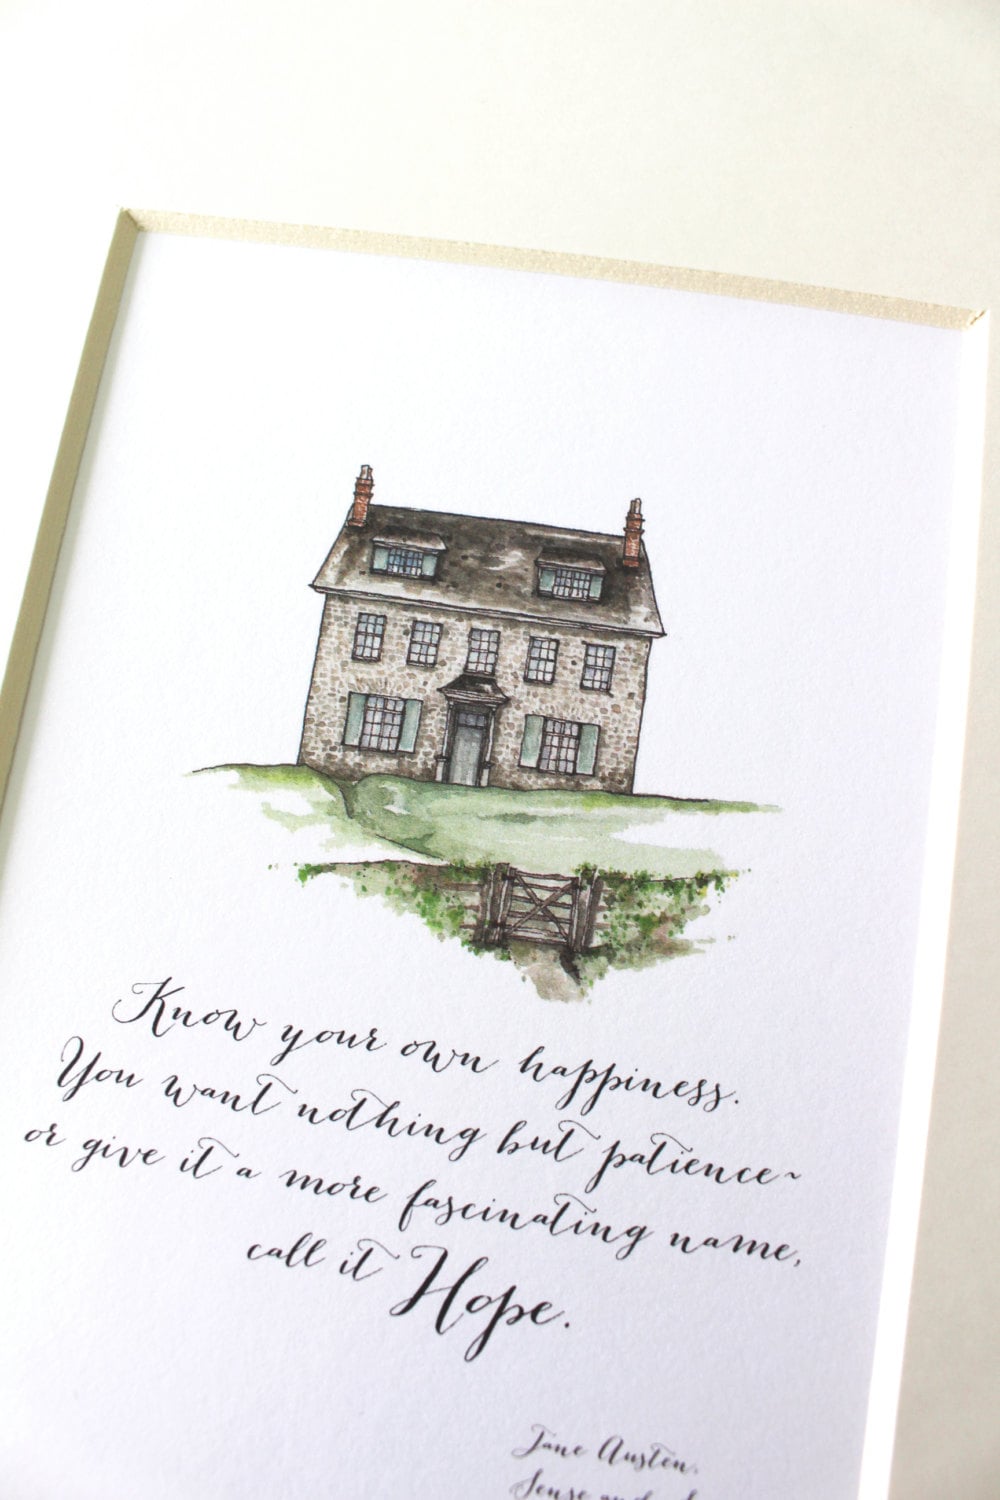 Know your own happiness.
You want nothing but patience~
or give it a more fascinating name,
call it Hope.
Jane Austen,
Sense and